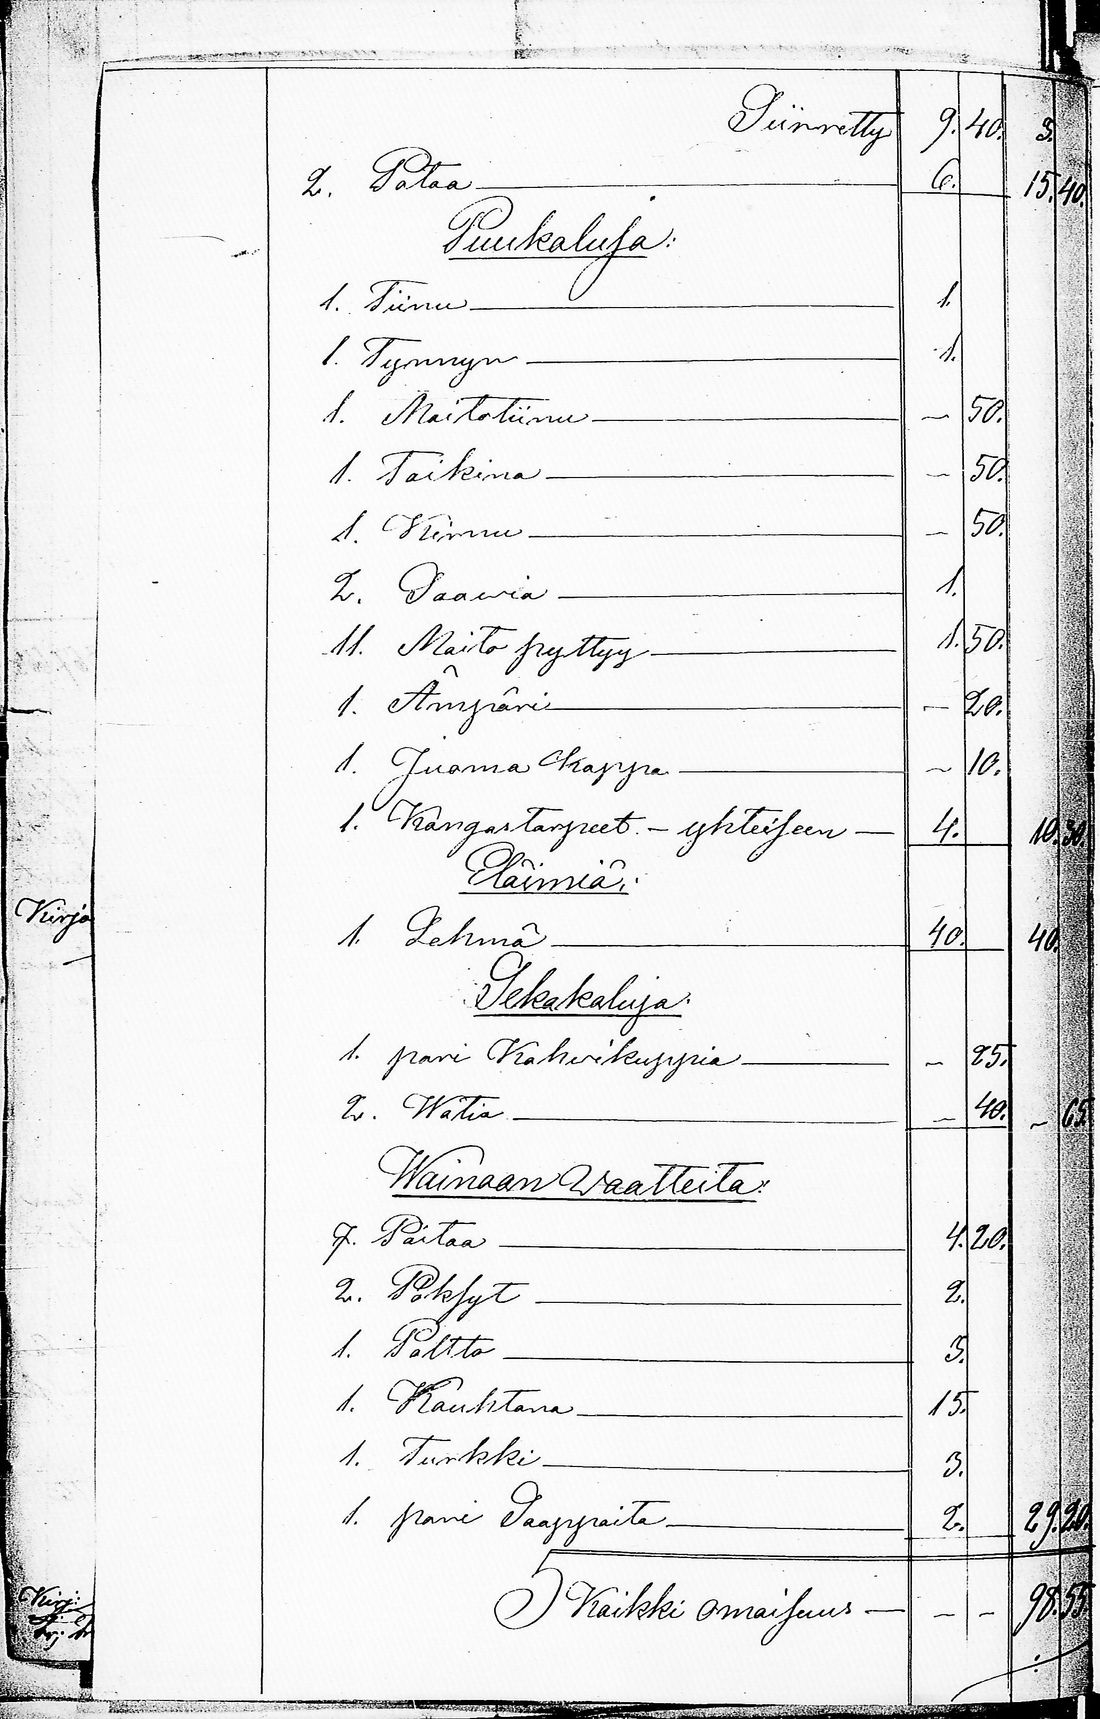 Siirretty 9. 40. 3.
2. Pataa 6. 15. 40.
Puukaluja:
1. Tiinu 1.
1. Tynnyri 1.
1. Maitotiinu - 50.
1. Taikina - 50.
1. Kirnu - 50.
2. Saawia 1.
11. Maito pyttyy 1. 50.
1. Ämpäri - 20.
1. Juoma Kappa - 10.
1. Kangastarpeet - yhteiseen - 4. 10. 30.
Eläimiä:
Kirja
1. Lehmä 40. 40.
Sekakaluja.
1. pari Kahwikuppia - 25.
2. Watia - 40. - 65.
Wainaan Waatteita:
7. Paitaa 4. 20.
2. Pöksyt 2.
1. Paltto 3.
1. Kauhtana 15.
1. Turkki 3.
1. pari Saappaita 2. 29. 20.
Kirj:
Kaikki omaisuus - - - 98. 55.